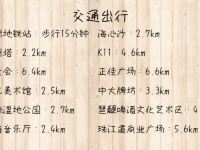 交通出行
地铁站：步行15分钟 海心沙：2.7km
塔：2.2km K11：4.6km
会：6.4km 正佳广场：6.6km
美术馆：2.5km 中大牌坊：3.3km
湿地公园：2.7km 琶醍啤酒文化艺术区：4
音乐厅：2.4km 珠江道商业广场：5.6km